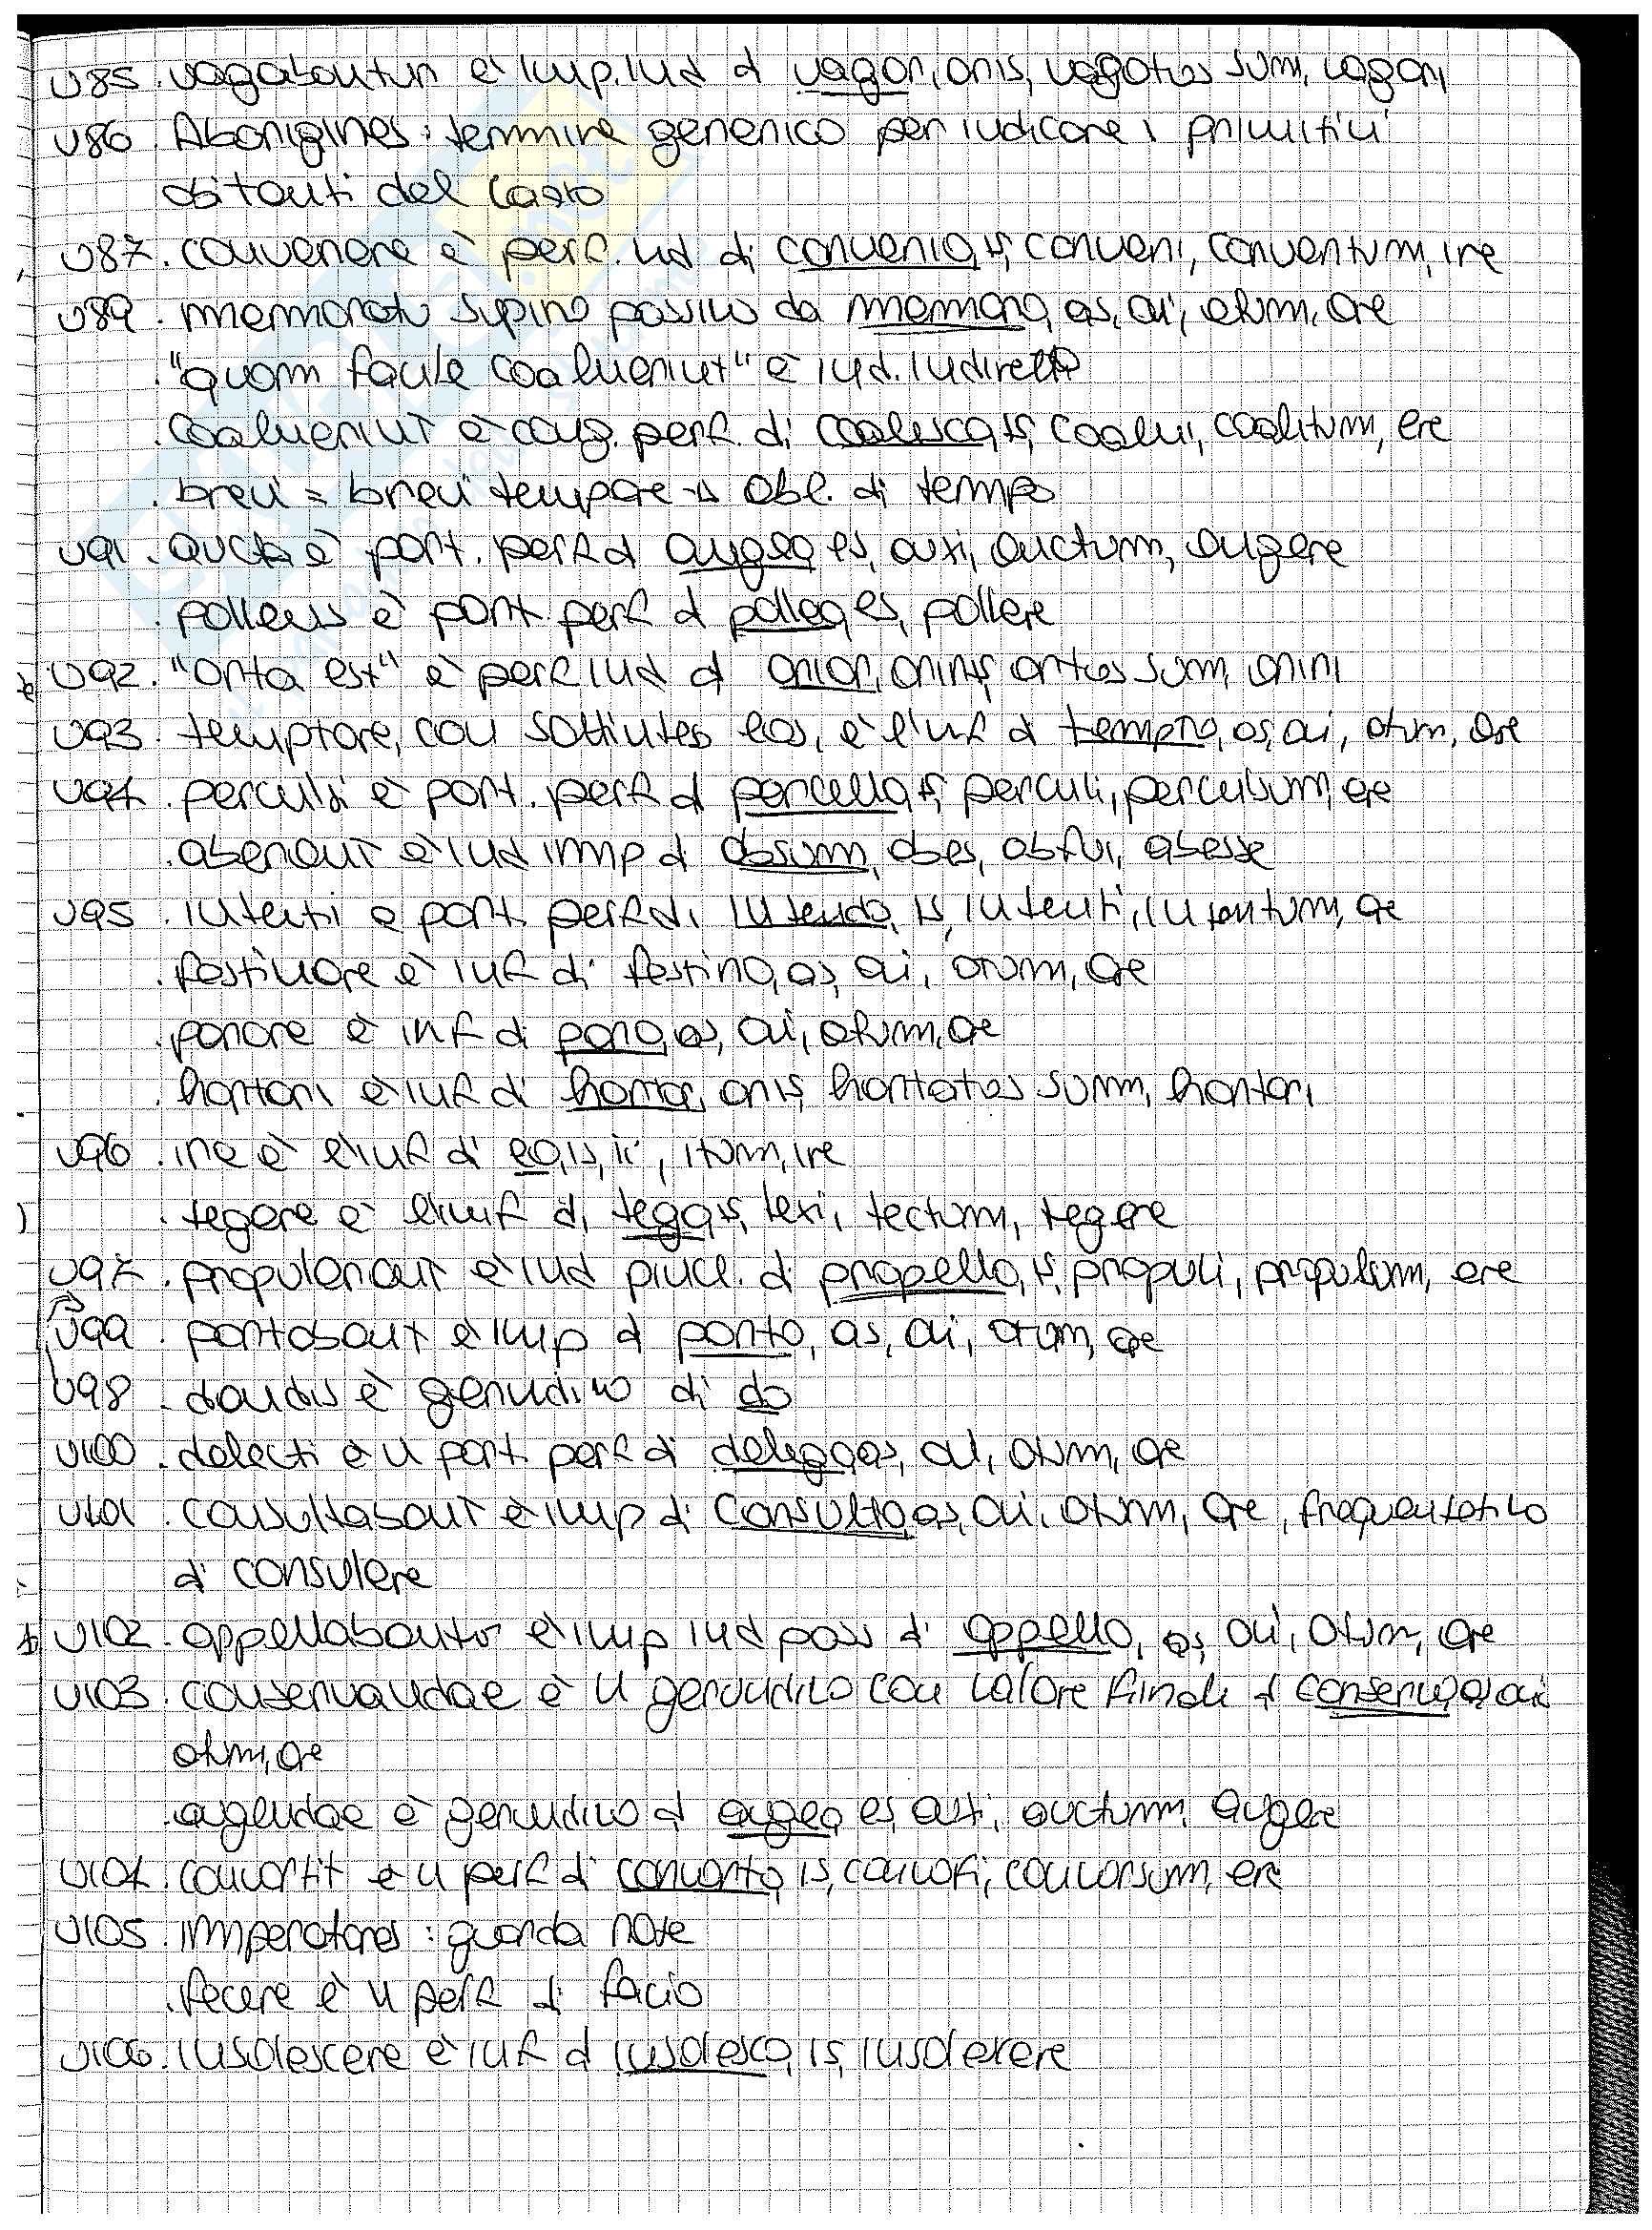 v85. vagabantur è imp. ind di vagor, aris, vagatus sum, vagari
v86. Aborigines: termine generico per indicare i primitivi
abitanti del Lazio
v87. convenere è perf. ind di convenio, is, conveni, conventum, ire
v89. memoratu supino passivo da memoro, as, avi, atum, are
. "quam facile coaluerint" è ind. indiretta
. coaluerint è cong. perf. di coalesco, is, coalui, coalitum, ere
. brevi = brevi tempore → abl. di tempo
v91. aucta è part. perf di augeo, es, auxi, auctum, augere
. pollens è part. perf di polleo, es, pollere
v92. "orta est" è perf ind di orior, oriris, ortus sum, oriri
v93. temptare, con sottinteso eos, è l'inf di tempto, as, avi, atum, are
v94. perculsi è part. perf di percello, is, perculi, perculsum, ere
. aberant è ind imp di absum, abes, abfui, abesse
v95. intenti è part. perf di intendo, is, intenti, intentum, ere
. festinare è inf di festino, as, avi, atum, are
. parare è inf di paro, as, avi, atum, are
. hortari è inf di hortor, aris, hortatus sum, hortari
v96. ire è l'inf di eo, is, ii, itum, ire
. tegere è l'inf di tego, is, texi, tectum, tegere
v97. propulerant è ind piucc. di propello, is, propuli, propulsum, ere
v99. portabant è imp di porto, as, avi, atum, are
v98. dandis è gerundivo di do
v100. delecti è il part. perf di delego, as, avi, atum, are
v101. consultabant è imp di consulto, as, avi, atum, are, frequentativo
di consulere
v102. appellabantur è imp ind pass di appello, as, avi, atum, are
v103. conservandae è il gerundivo con valore finale di conservo, as, avi
atum, are
. augendae è gerundivo di augeo, es, auxi, auctum, augere
v104. convortit è il perf di convorto, is, convorti, convorsum, ere
v105. imperatores: guarda note
. fecere è il perf di facio
v106. insolescere è inf di insolesco, is, insolescere